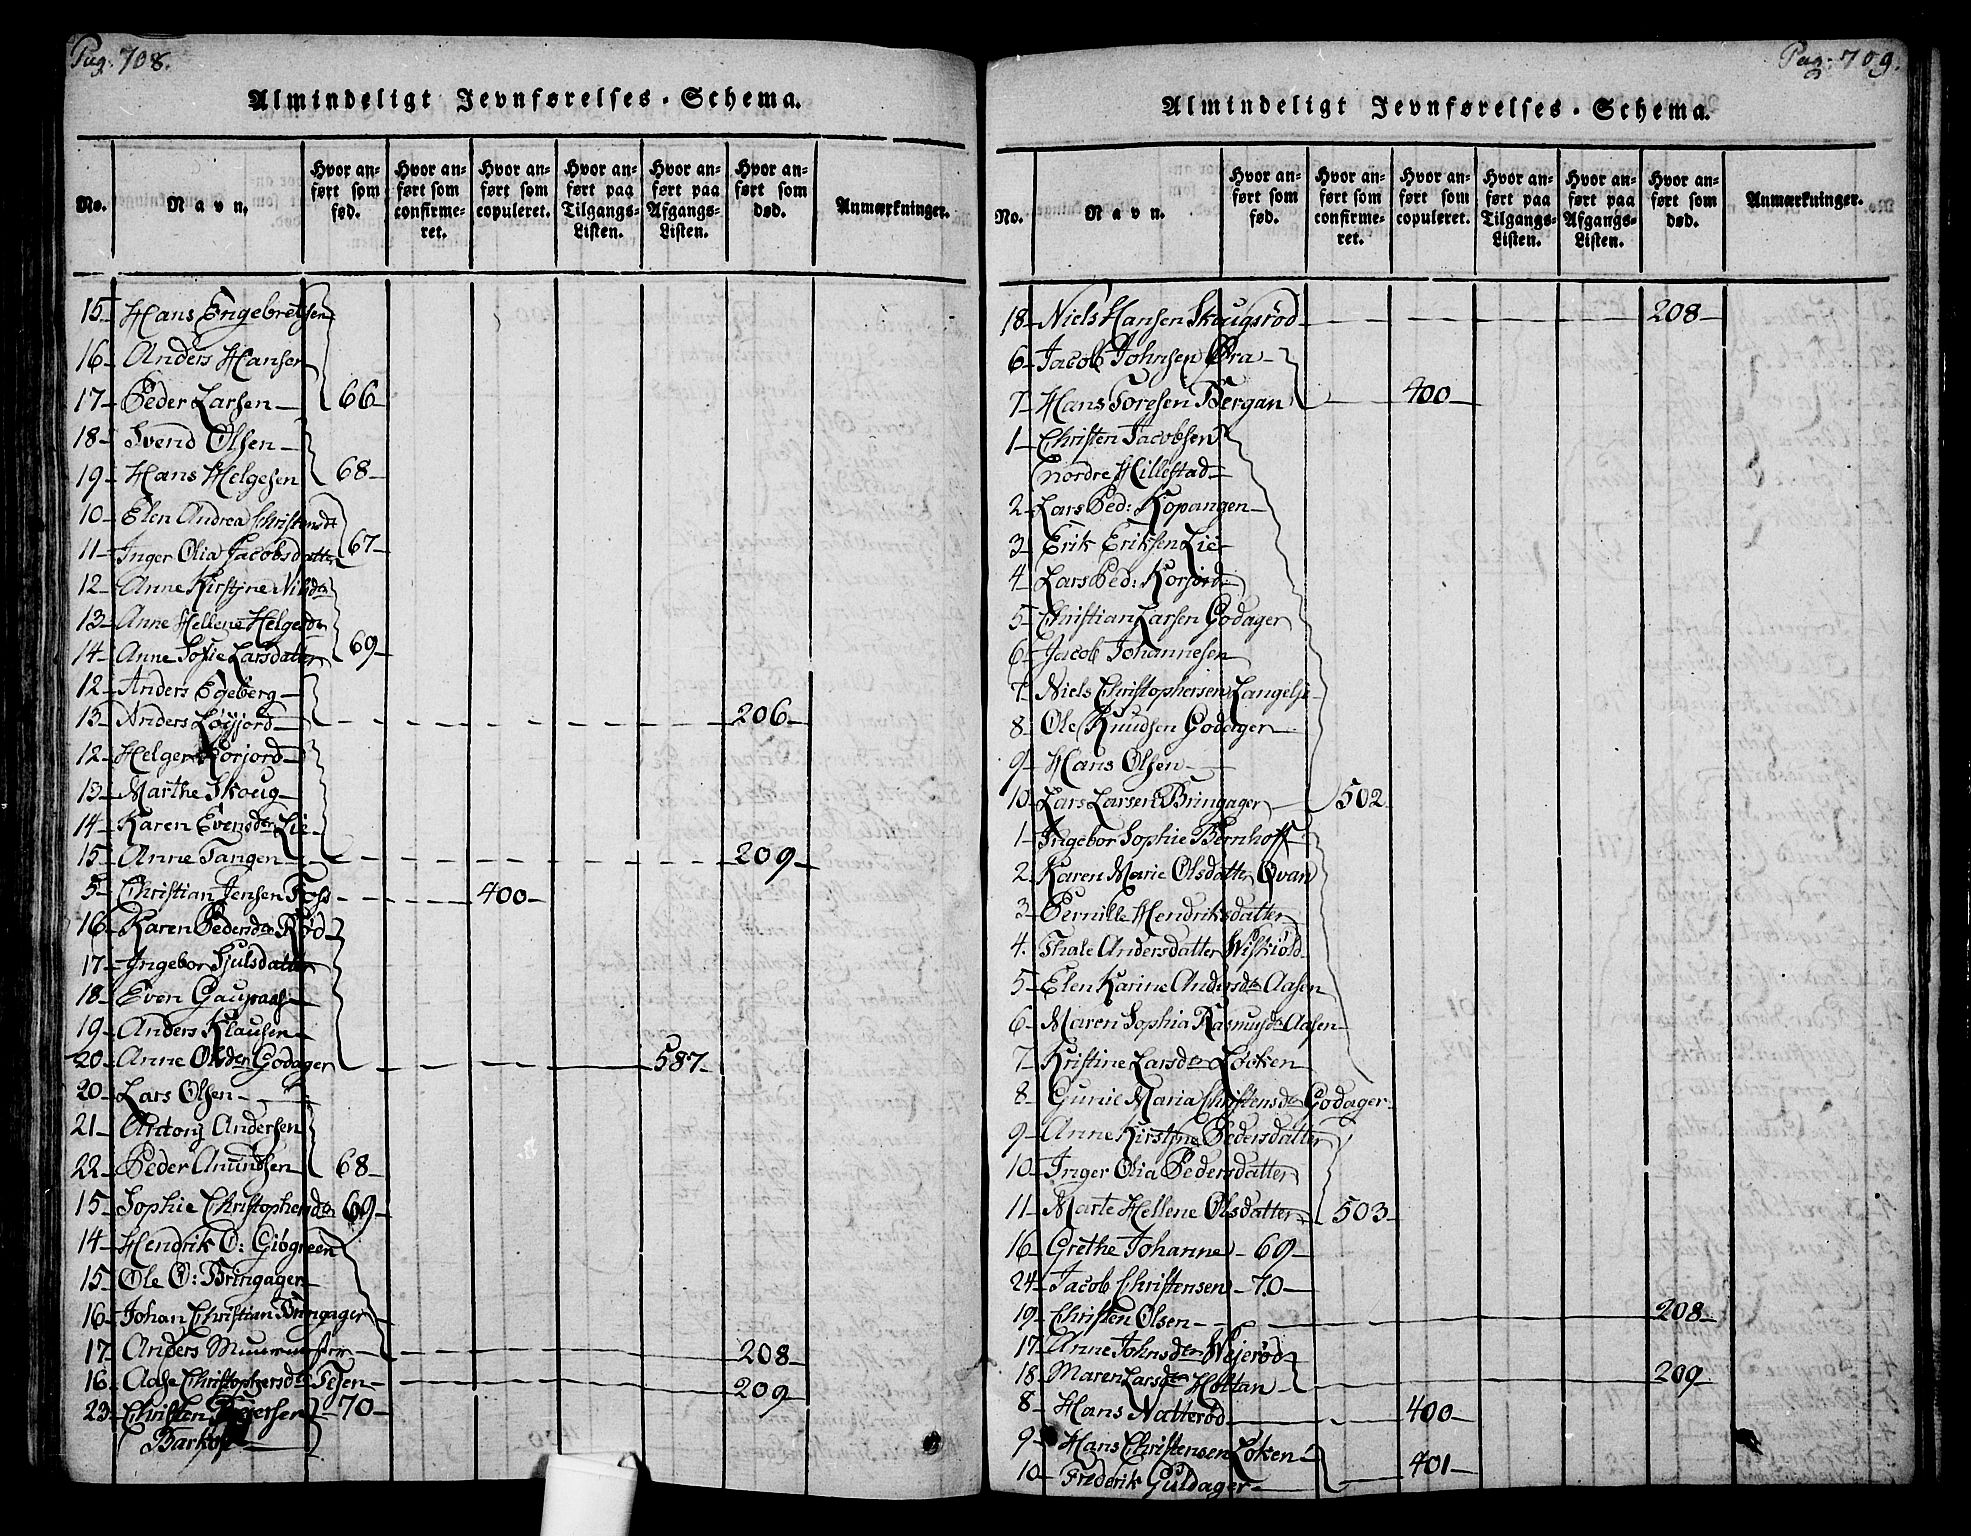 Pag. 708.
Almindeligt Jevnførelses-Schema.
No.
Navn.
Hvor an-
ført som
fød.
Hvor an-
ført som
confirme-
ret.
Hvor an-
ført som
copuleret.
Hvor an-
ført paa
Tilgangs-
Listen.
Hvor an-
ført paa
Afgangs-
Listen.
Hvor an-
ført som
død.
Anmærkninger.
15 Hans Engebretsen
16 Anders Hansen
17 Peder Larsen 66
18 Svend Olsen
19 Hans Helgesen 68
10 Elen Andrea
11 Inger Olia Jacobsdatter 67
12 Anne Kirstine
13 Anne Hellene
14 Anne Sofie Larsdatter 69
12 Anders Egeberg
13 Anders 206
12 Helge Korjord
13 Marthe Skoug
14 Karen Evensdtr Lie
15 Anne Tangen 209
5 Christian Jensen Foss 400
16 Karen Pedersdtr Rød
17 Ingebor Hjulsdatter
18 Even Gaupaas
19 Anders Klausen
20 Anne Olsdtr Godager 587
20 Lars Olsen
21 Antony Andersen
22 Peder Amundsen 68
15 Sophie Christophersdtr 69
14 Hendrik O:
15 Ole O: Bringager
16 Johan Christian Bringager
17 Anders 208
16 Aase Christophersdtr 209
23 Christen 70
Pag. 709.
Almindeligt Jevnførelses-Schema.
No.
Navn.
Hvor an-
ført som
fød.
Hvor an-
ført som
confirme-
ret.
Hvor an-
ført som
copuleret.
Hvor an-
ført paa
Tilgangs-
Listen.
Hvor an-
ført paa
Afgangs-
Listen.
Hvor an-
ført som
død.
Anmærkninger.
18 Niels Hansen Skougsrød 208
6 Jacob Johnsen Øra
7 Hans Toresen Bergan 400
1 Christen Jacobsen
nordre Hillestad
2 Lars Ped: Kopangen
3 Erik Eriksen Lie
4 Lars Ped: Korjord
5 Christian Larsen Godager
6 Jacob Johannesen
7 Niels Christophersen
8 Ole Knudsen Godager
9 Hans Olsen
10 Lars Larsen Bringager 502
1 Ingebor Sophie Bernhoff
2 Karen Marie Olsdatter Qvan
3 Pernille Hendriksdatter
4. Thale Andersdatter
5 Elen Karine Andersdtr Aasen
6 Maren Sophia Rasmusdtr Aasen
7 Kristine Larsdtr Løcken
8 Gunie Maria Christensdtr Godager
9 Anne Kirstine Pedersdatter
10 Inger Olia Pedersdatter
11 Marte Hellene Olsdatter 503
16 Grethe Johanne 69
24 Jacob Christensen 70
19 Christen Olsen 208
17 Anne Johnsdtr Wejerød
18 Maren Larsdtr Holtan 209
8 Hans Natterød 400
9 Hans Christensen Løken
10 Frederik Guldager 401